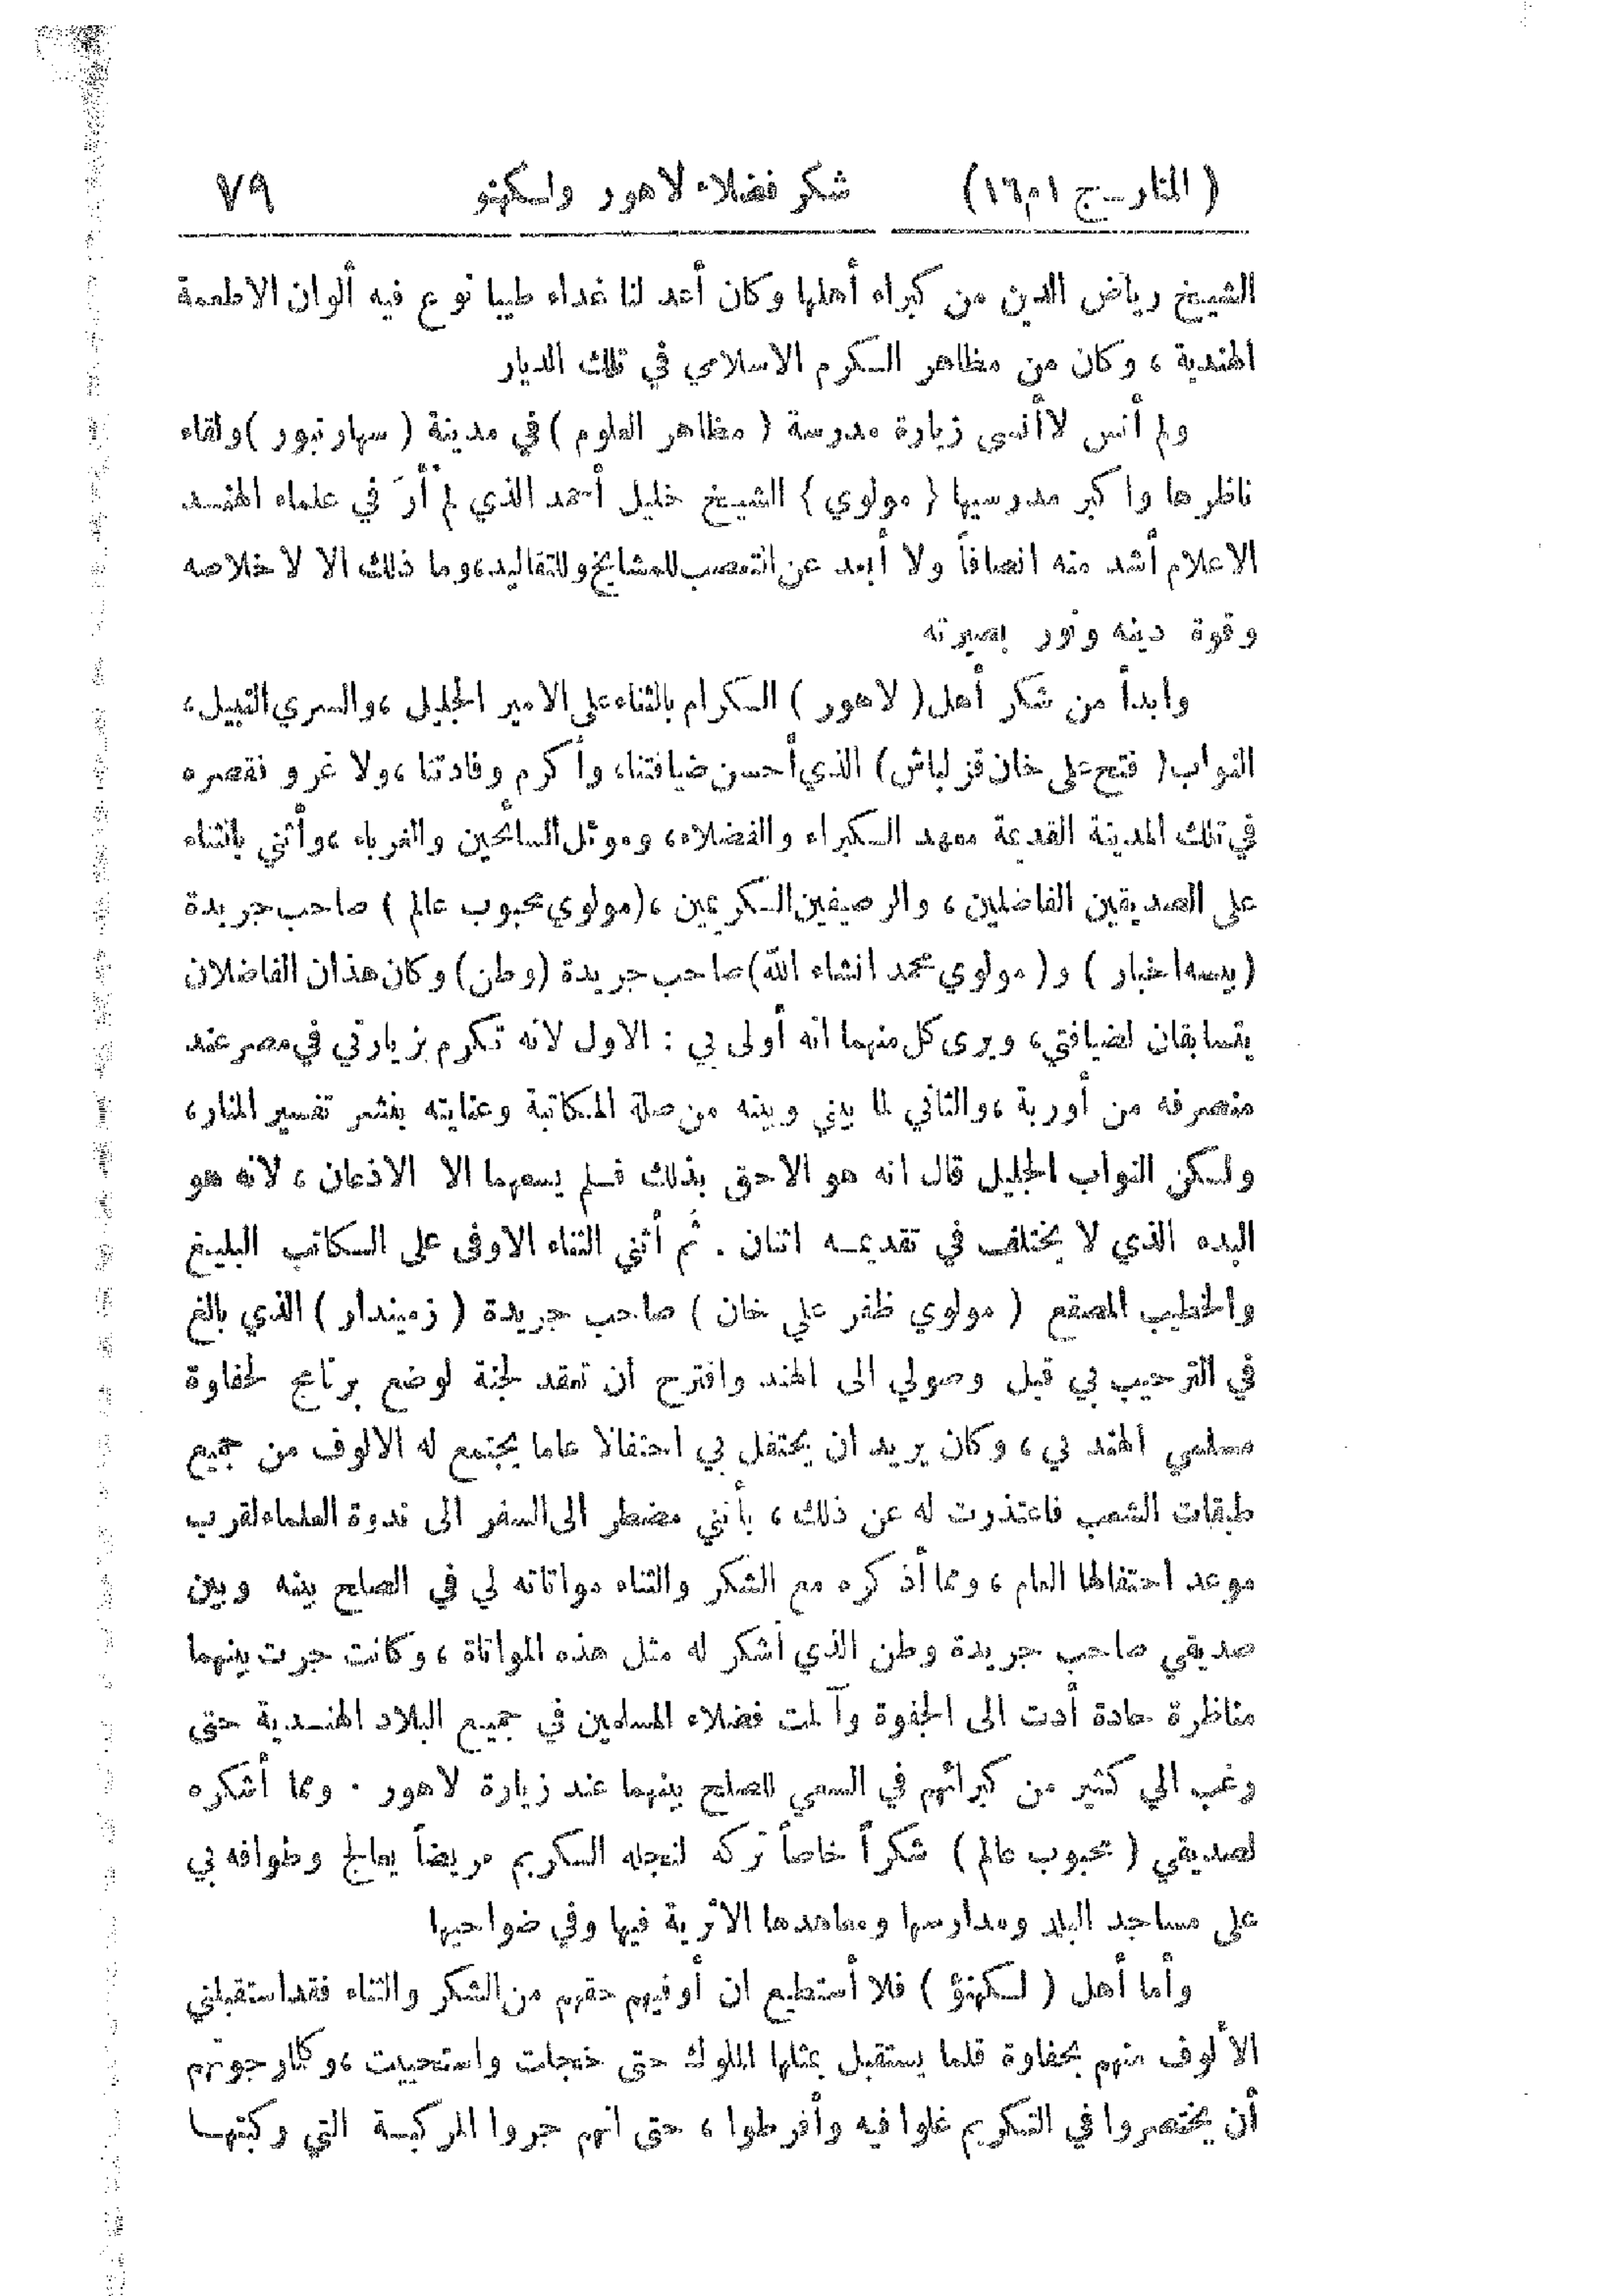 ( المنار ـ ج ١ م ١٦ ) شكر فضلاء لاهور ولكهنو ٧٩
الشيخ رياض الدين من كبراء أهلها وكان أعد لنا غداء طيبا نوع فيه ألوان الاطعمة
الهندية ، وكان من مظاهر الكرم الاسلامي في تلك الديار
ولم أنس لا أنسى زيارة مدرسة ( مظاهر العلوم ) في مدينة ( سهارنبور ) ولقاء
ناظرها وأكبر مدرسيها ( مولوي ) الشيخ خليل أحمد الذي لم أرَ في علماء الهند
الاعلام أشد منه انصافاً ولا أبعد عن التعصب للمشايخ وللتقاليد، وما ذلك الا لاخلاصه
وقوة دينه ونور بصيرته
وابدأ من شكر أهل ( لاهور ) الكرام بالثناء على الامير الجليل ، والسري النبيل ،
النواب ( فتح على خان قزلباش ) الذي أحسن ضيافتنا، وأكرم وفادتنا ، ولا غرو فقصره
في تلك المدينة القديمة معهد الكبراء والفضلاء، وموئل السائحين والغرباء ، وأثني بالثناء
على الصديقين الفاضلين ، والرصيفين الكريمين ، (مولوي محبوب عالم ) صاحب جريدة
(يسه اخبار ) و ( مولوي محمد انشاء الله) صاحب جريدة (وطن) وكان هذان الفاضلان
يتسابقان لضيافتي، ويرى كل منهما انه أولى بي : الاول لانه تكرم بزيارتي في مصر عند
منصرفه من أوربة ، والثاني لما بيني وبينه من صلة المكاتبة وعنايته بنشر تفسير المنار ،
ولكن النواب الجليل قال انه هو الاحق بذلك فلم يسعهما الا الاذعان ، لانه هو
البدء الذي لا يختلف في تقديمه اثنان . ثم أثني الثناء الاوفى على الكاتب البليغ
والخطيب المصقع ( مولوي ظفر علي خان ) صاحب جريدة ( زميندار ) الذي بالغ
في الترحيب بي قبل وصولي الى الهند واقترح أن تعقد لجنة لوضع برنامج لحفاوة
مسلمي الهند بي ، وكان يريد ان يحتفل بي احتفالا عاما يجتمع له الالوف من جميع
طبقات الشعب فاعتذرت له عن ذلك ، بأنني مضطر الى السفر الى ندوة العلماء لقرب
موعد احتفالها العام ، ومما أذكره مع الشكر والثناء مواتاته لي في الصلح بينه وبين
صديقي صاحب جريدة وطن الذي أشكر له مثل هذه المواتاة ، وكانت جرت بينهما
مناظرة حادة أدت الى الجفوة وآلمت فضلاء المسلمين في جميع البلاد الهندية حتى
رغب الي كثير من كبرائهم في السعي للصلح بينهما عند زيارة لاهور . ومما أشكره
لصديقي ( محبوب عالم ) شكراً خاصاً تركه لنجله الكريم مريضاً يعالج وطوافه بي
على مساجد البلد ومدارسها ومعاهدها الاثرية فيها وفي ضواحيها
وأما أهل ( لكهنؤ ) فلا أستطيع ان أوفيهم حقهم من الشكر والثناء فقد استقبلني
الألوف منهم بحفاوة قلما يستقبل بمثلها الملوك حتى خجلت واستحييت ، وكلما رجوتهم
أن يختصروا في التكريم غلوا فيه وأفرطوا ، حتى انهم جروا المركبة التي ركبتها